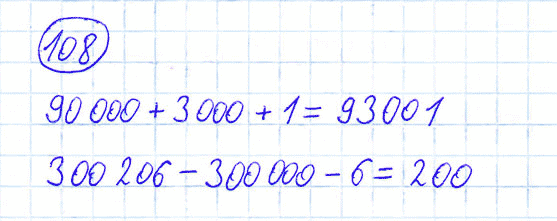 108
90 000 + 3 000 + 1 = 93001
300 206 - 300 000 - 6 = 200